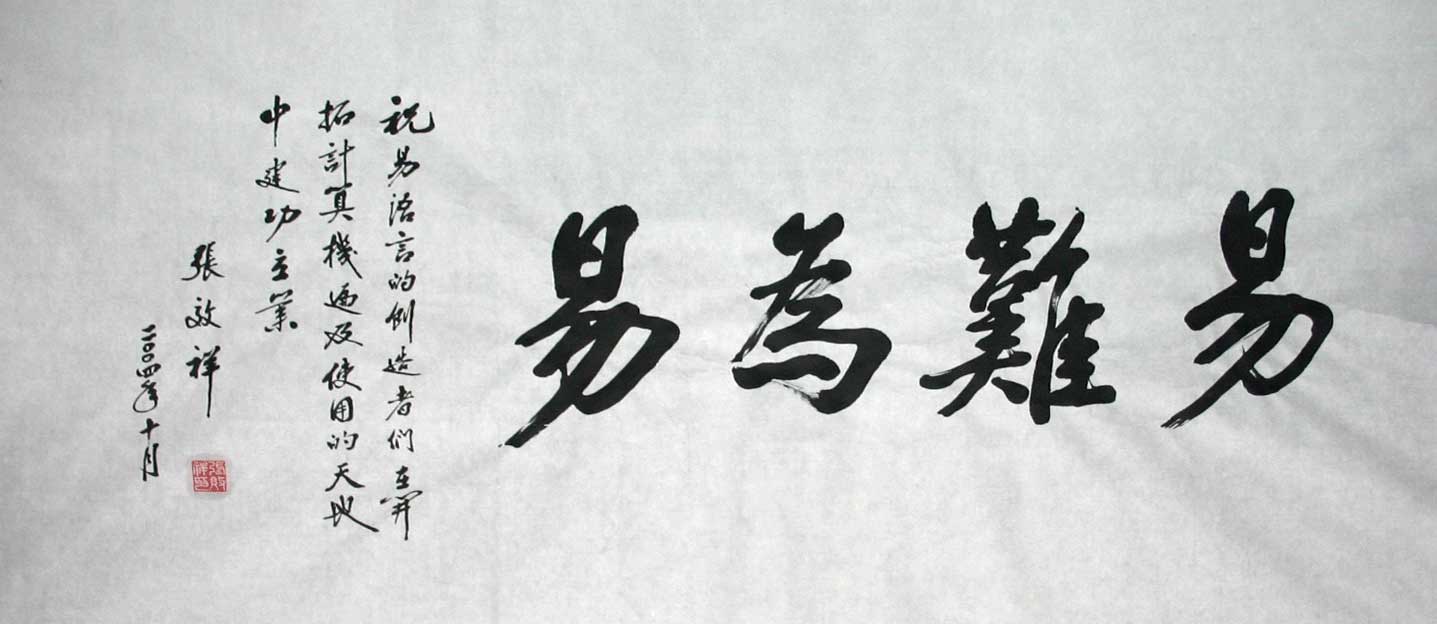 易難為易
祝易語言的創造者們在開
拓計算機遍及使用的天地
中建功立業
張效祥
二〇〇四年十月